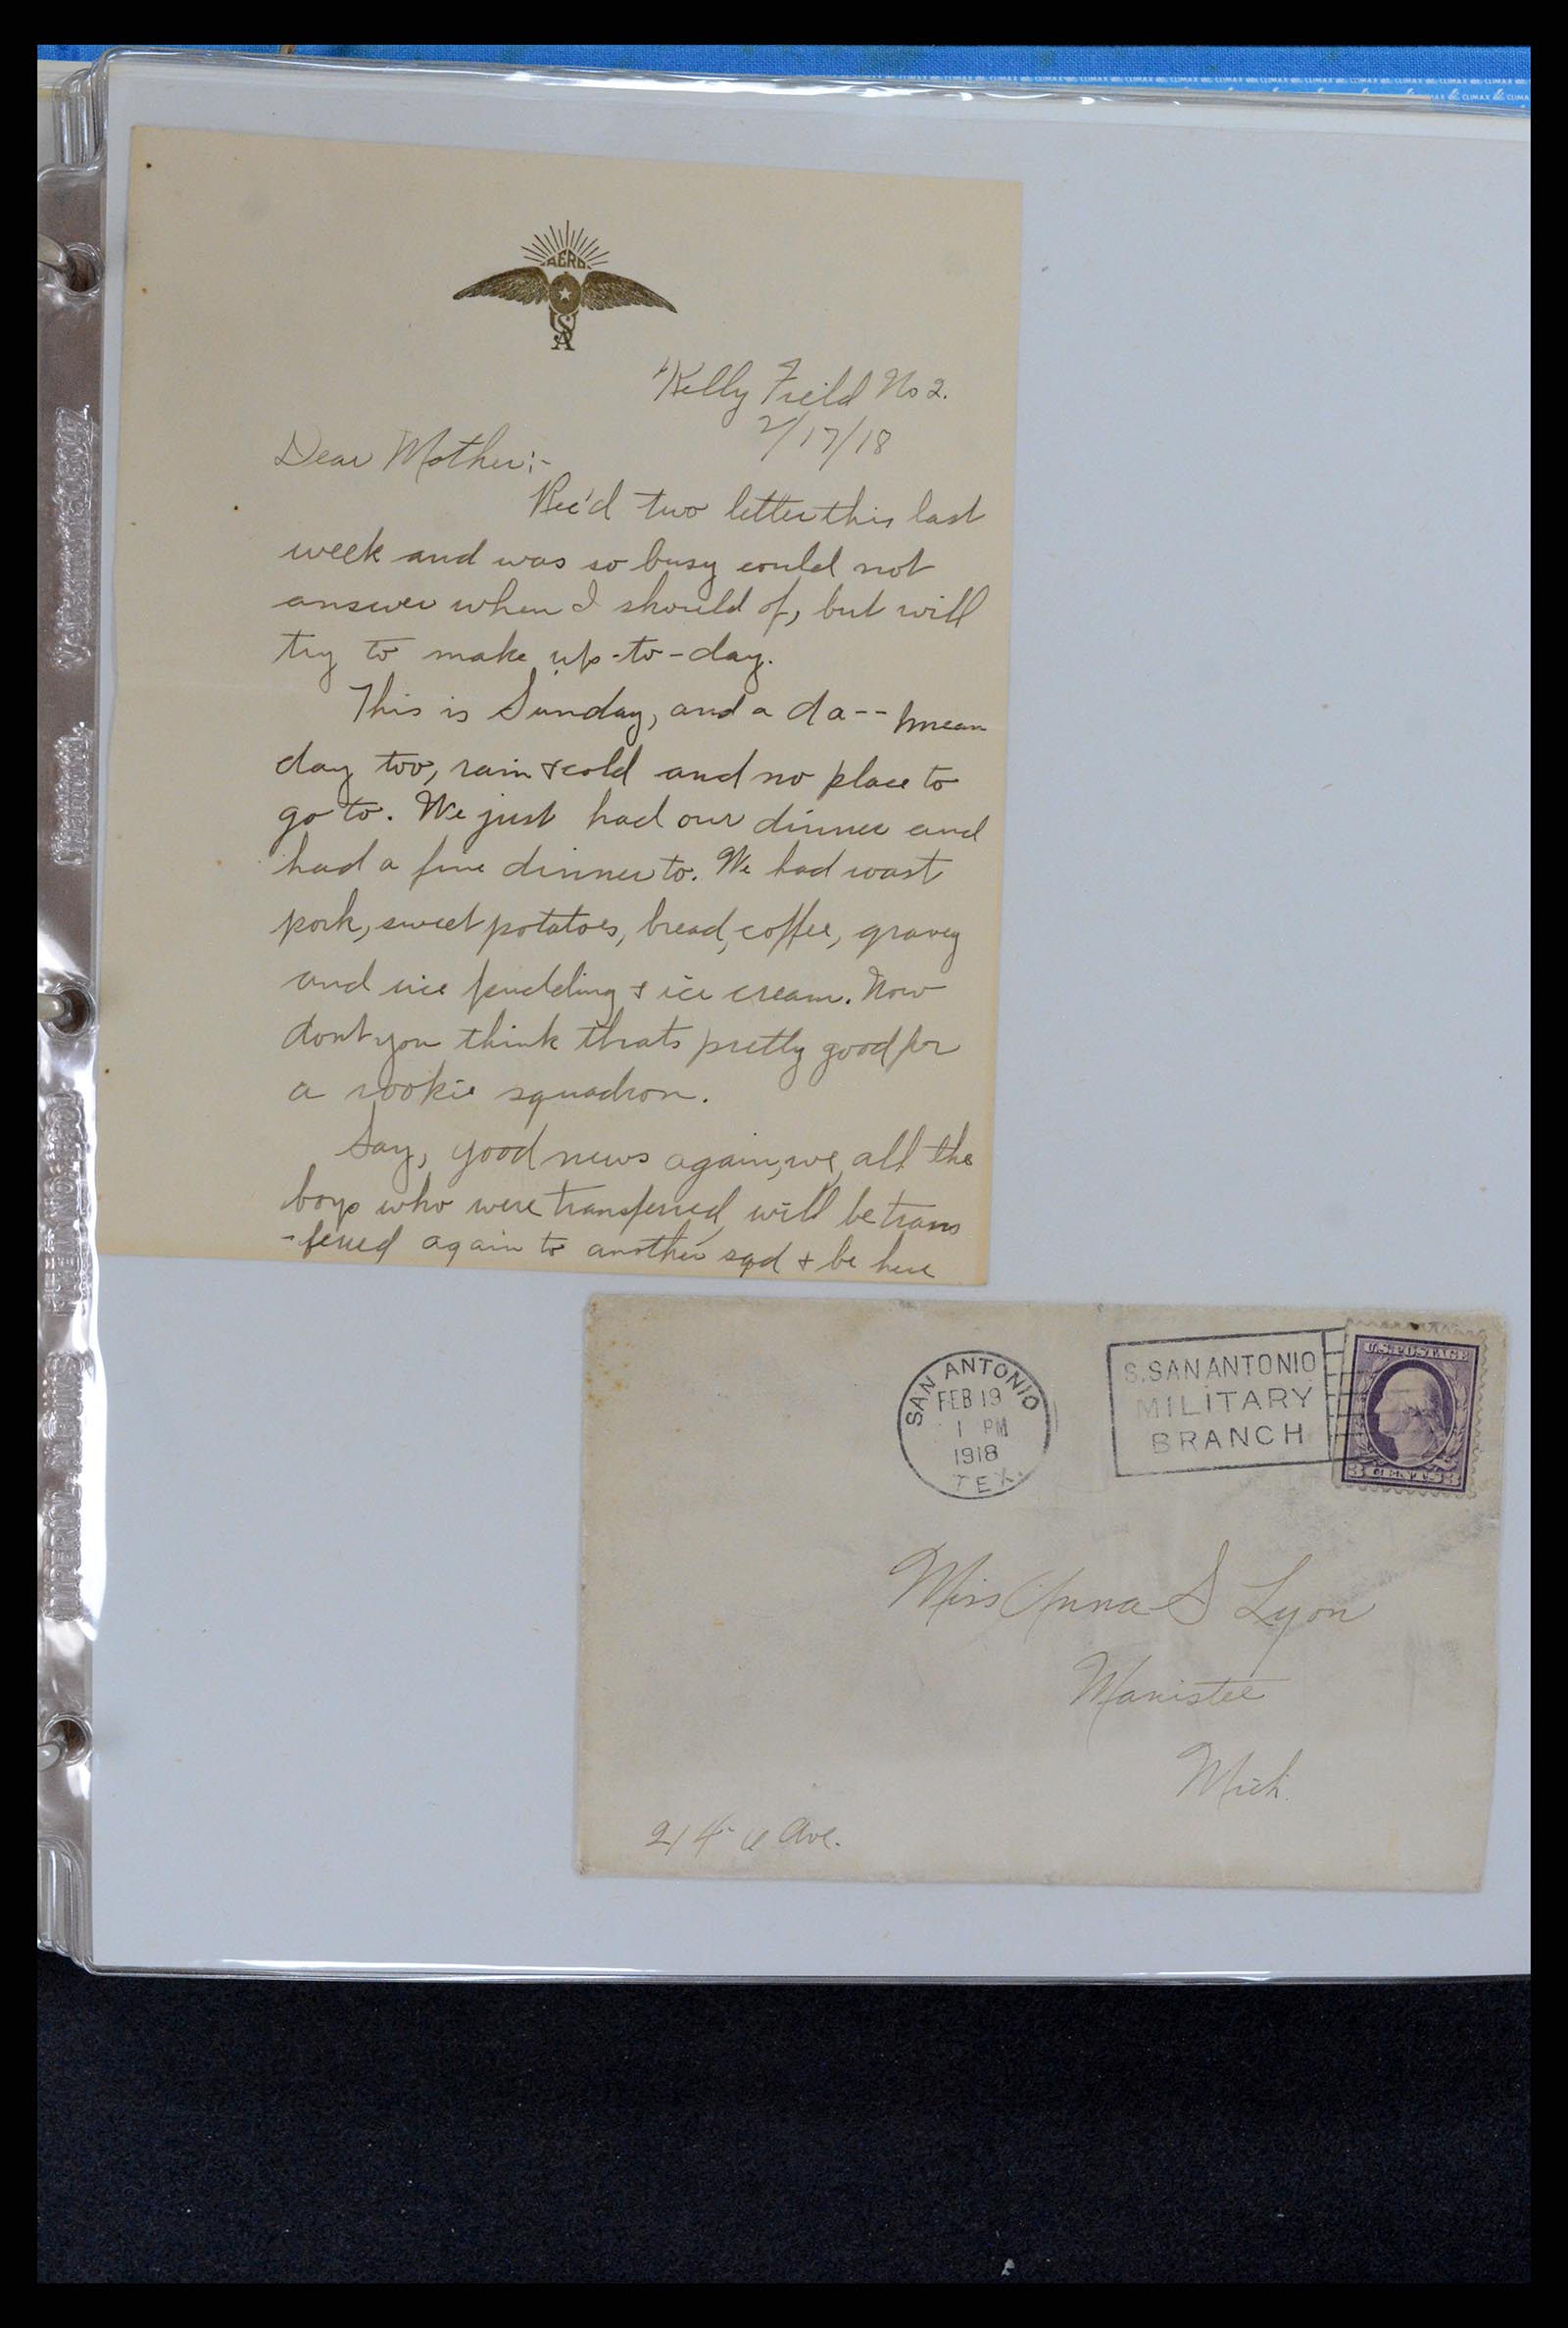 CLIMAX CLIMAX CLIMAX CLIMAX
AERO
USA
Kelly Field No 2.
2/17/18
Dear Mother:-
Rec'd two letter this last
week and was so busy could not
answer when I should of, but will
try to make up-to-day.
This is Sunday, and a da-- mean
day too, rain & cold and no place to
go to. We just had our dinner and
had a fine dinner to. We had roast
pork, sweet potatoes, bread, coffee, gravey
and rice pudding & ice cream. Now
dont you think thats pretty good for
a rookie squadron.
Say, good news again, we, all the
boys who were transferred, will be trans
-ferred again to another sqd & be here
SAN ANTONIO
FEB 19
1 PM
1918
TEX.
S. SAN ANTONIO
MILITARY
BRANCH
U.S. POSTAGE
3 CENTS 3
Miss Anna S Lyon
Manistee
Mich.
214 Ave.